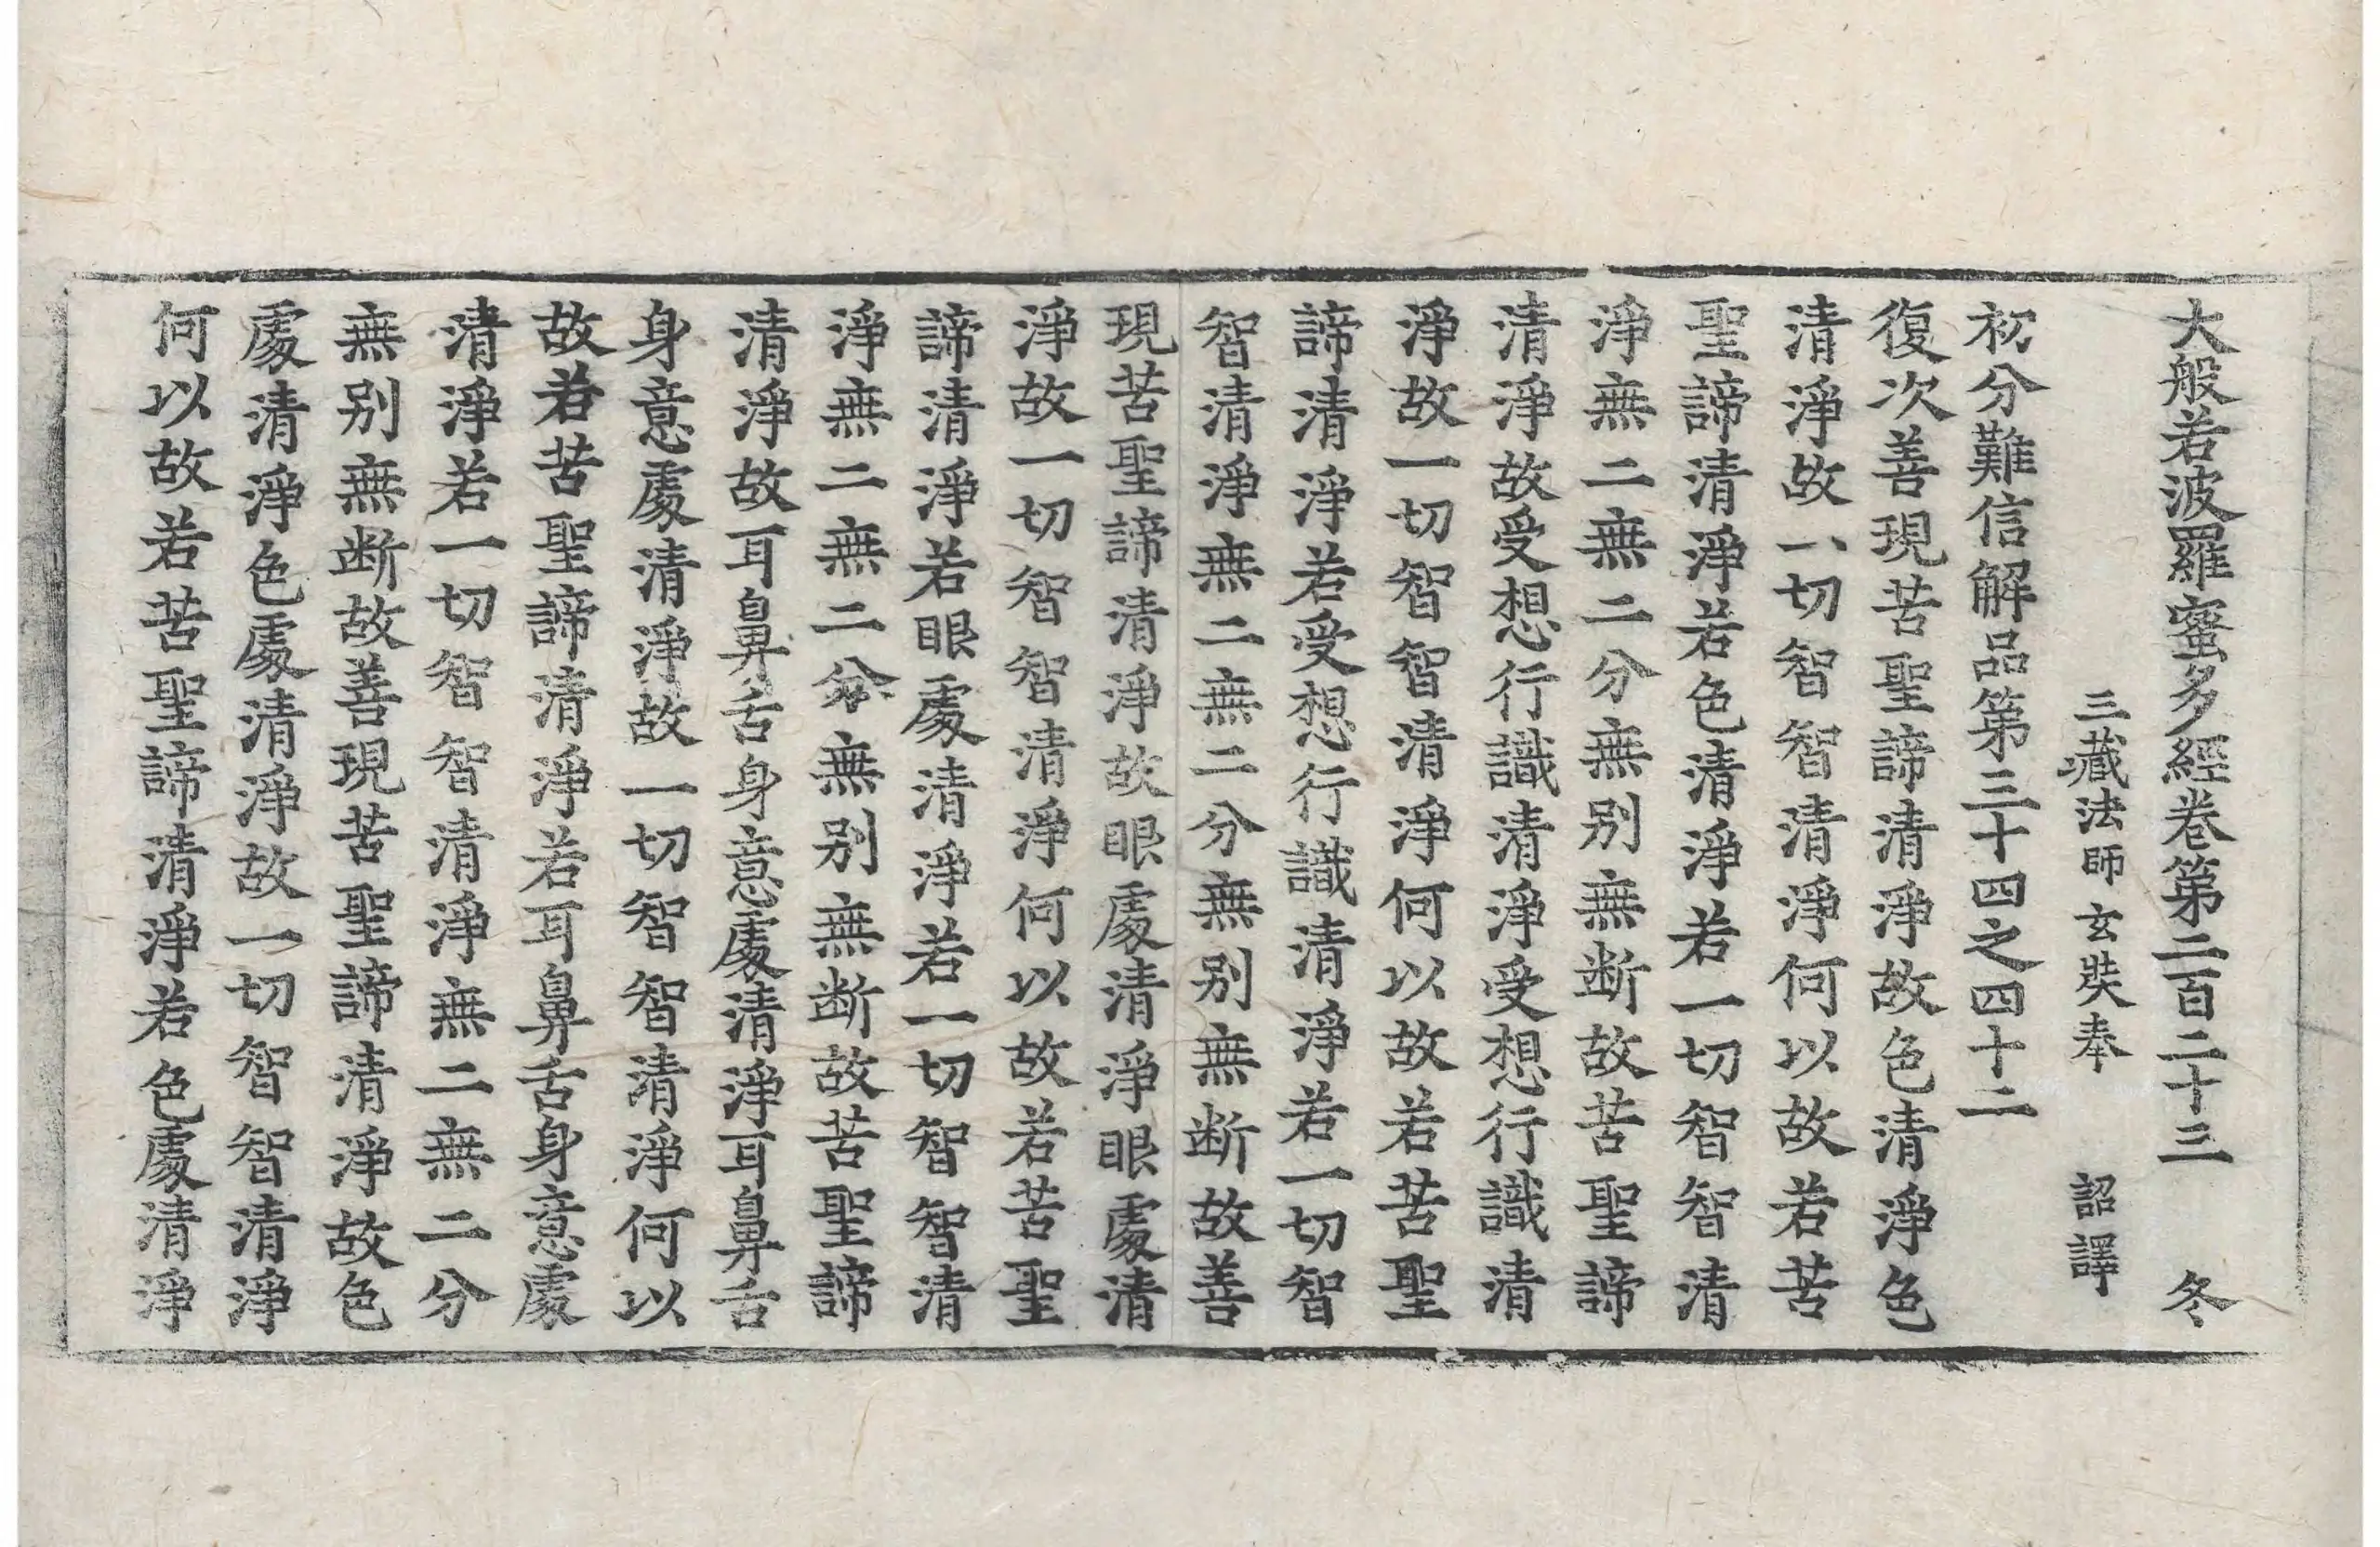 大般若波羅蜜多經卷第二百二十三 冬
三藏法師玄奘奉 詔譯
初分難信解品第三十四之四十二
復次善現苦聖諦清淨故色清淨色
清淨故一切智智清淨何以故若苦
聖諦清淨若色清淨若一切智智清
淨無二無二分無別無断故苦聖諦
清淨故受想行識清淨受想行識清
淨故一切智智清淨何以故若苦聖
諦清淨若受想行識清淨若一切智
智清淨無二無二分無別無断故善
現苦聖諦清淨故眼處清淨眼處清
淨故一切智智清淨何以故若苦聖
諦清淨若眼處清淨若一切智智清
淨無二無二分無別無断故苦聖諦
清淨故耳鼻舌身意處清淨耳鼻舌
身意處清淨故一切智智清淨何以
故若苦聖諦清淨若耳鼻舌身意處
清淨若一切智智清淨無二無二分
無別無断故善現苦聖諦清淨故色
處清淨色處清淨故一切智智清淨
何以故若苦聖諦清淨若色處清淨